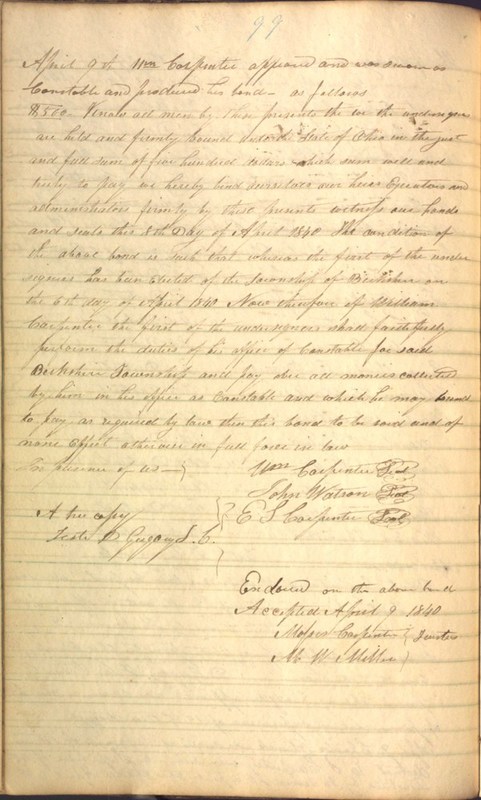 99
April 9th Wm Carpenter appeared and was sworn as
Constable and produced his bond - as follows
$500. Know all men by these presents that we the undersigned
are held and firmly bound unto the State of Ohio in the just
and full sum of five hundred dollars which sum well and
truly to pay we hereby bind ourselves our heirs Executors and
administrators firmly by these presents witness our hands
and seals this 8th Day of April 1840 The condition of
the above bond is such that whereas the first of the under
signers has been elected of the Township of Berkshire on
the 6th day of April 1840 Now therefore if William
Carpenter the first of the undersigners shall faithfully
perform the duties of his office of Constable for said
Berkshire Township and pay over all monies collected
by him in his office as Constable and which he may bound
to pay as required by law then this bond to be void and of
none Effect otherwise in full force in law
In presence of us
Wm Carpenter Seal
John Watson Seal
A true copy
E S Carpenter Seal
Teste D Gregory T. C.
Endorsed on the above bond
Accepted April 9 1840
Moses Carpenter Trustees
M W Miller